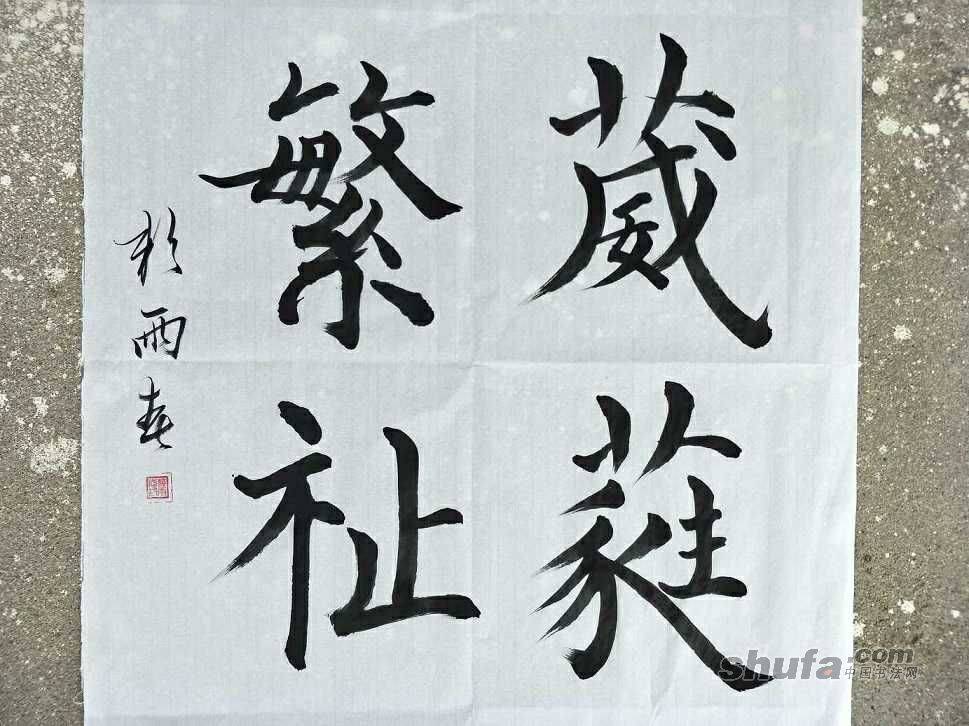 葳蕤
繁祉
雨春
shufa.com
中国书法网